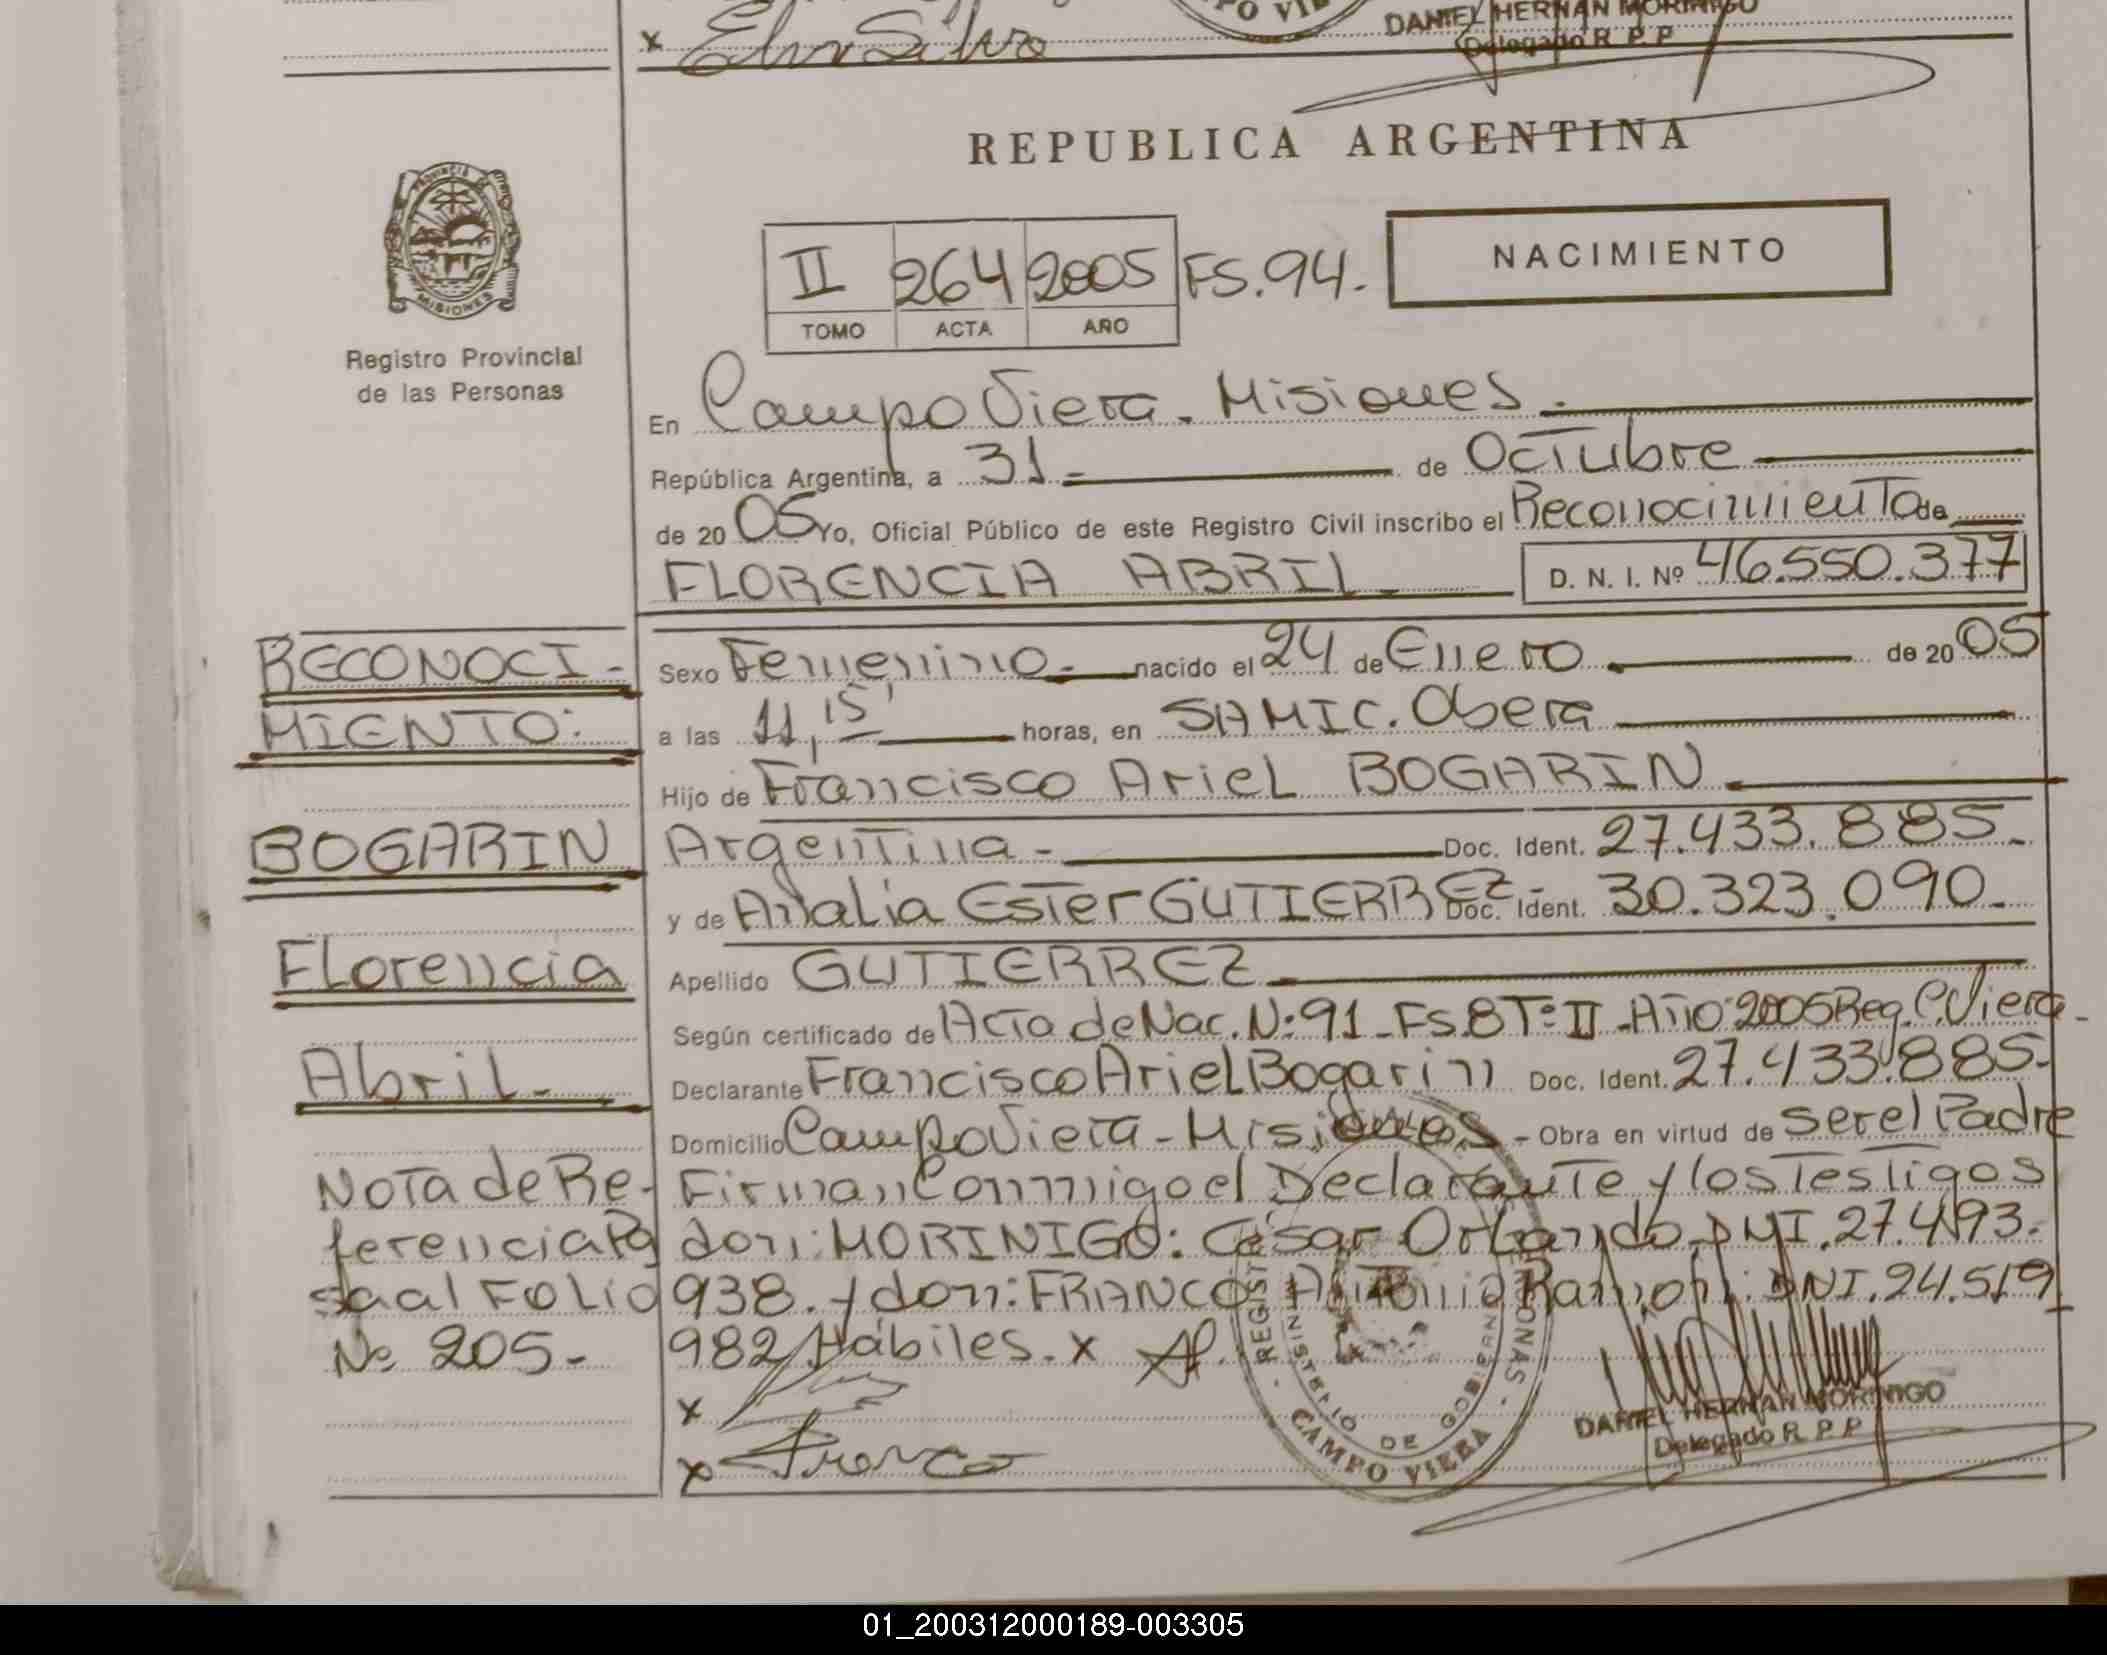 x Elva Silva
CAMPO VIE
DANIEL HERNAN MORINIGO
Delegado R. P. P.
REPUBLICA ARGENTINA
PROVINCIA DE
MISIONES
Registro Provincial
de las Personas
II 264 2005 FS.94.
TOMO ACTA AÑO
NACIMIENTO
En Campo Viera. Misiones.
República Argentina, a 31 - de Octubre
de 20 05 Yo, Oficial Público de este Registro Civil inscribo el Reconocimiento de
FLORENCIA ABRIL - D. N. I. Nº 46.550.377
RECONOCI-
MIENTO:
BOGARIN
Florencia
Abril.-
Nota de Re-
ferencia Pa
sa al FOLIO
Nº 205.-
Sexo Femenino.- nacido el 24 de Enero. de 20 05
a las 11,15' horas, en SAMIC. Obera
Hijo de Francisco Ariel BOGARIN.
Argentina - Doc. Ident. 27.433.885.-
y de Analia Ester GUTIERREZ - Doc. Ident. 30.323.090.-
Apellido GUTIERREZ -
Según certificado de Acta de Nac. N: 91 - Fs 8 Tº II - Año: 2005 Reg. C. Viera -
Declarante Francisco Ariel Bogarin Doc. Ident. 27.433.885.-
Domicilio Campo Viera - Misiones - Obra en virtud de ser el Padre
Firman Conmigo el Declarante y los Testigos
don: MORINIGO: César Orlando. DNI. 27.493.
938. y don: FRANCO Antonio Ramon: DNI. 24.519
982 Hábiles. x
x
x Franco
MINISTERIO DE GOBIERNO
CAMPO VIERA
DANIEL HERNAN MORINIGO
Delegado R. P. P.
01_200312000189-003305